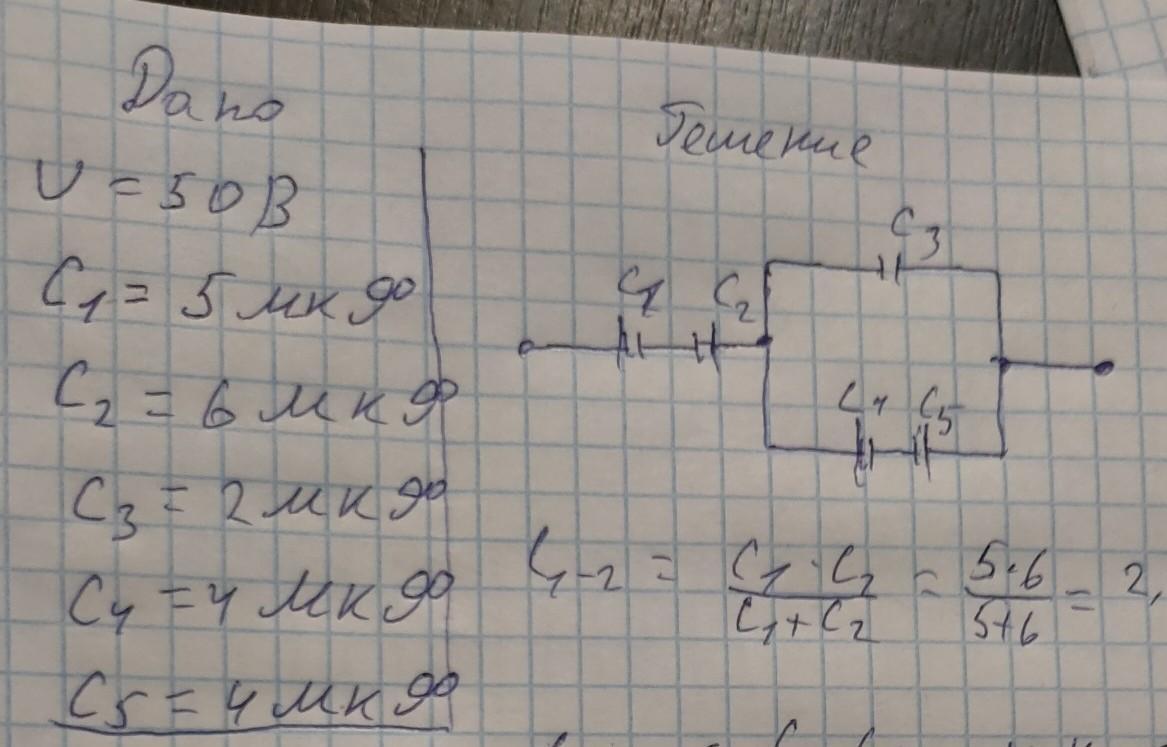 Дано
U = 50В
C1 = 5 мкФ
C2 = 6 мкФ
C3 = 2 мкФ
C4 = 4 мкФ
C5 = 4 мкФ
Решение
C3
C1 C2
C4 C5
C1-2 = C1 · C2 / C1 + C2 = 5·6 / 5+6 = 2,